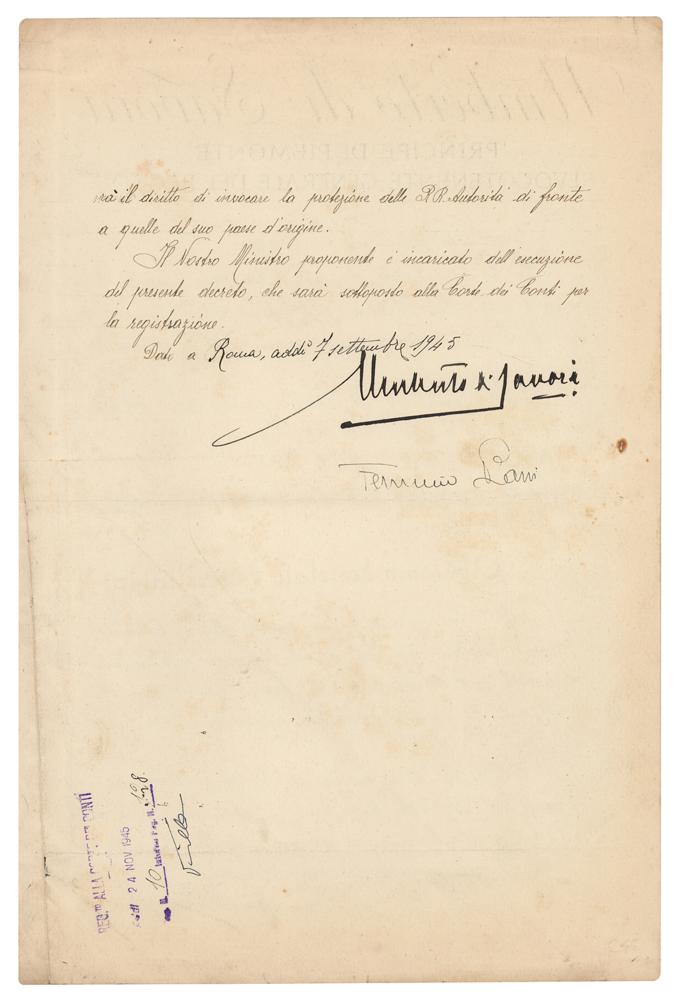 rà il diritto di invocare la protezione delle R.R. Autorità di fronte
a quelle del suo paese d'origine.
Il Nostro Ministro proponente è incaricato dell'esecuzione
del presente decreto, che sarà sottoposto alla Corte dei Conti per
la registrazione.
Dato a Roma, addì 7 settembre 1945
Umberto di Savoia
Ferruccio Parri
REG.to ALLA CORTE DEI CONTI
addì 24 NOV 1945
10
Villa
Umberto di Savoia
PRINCIPE DI PIEMONTE
LUOGOTENENTE GENERALE DEL REGNO